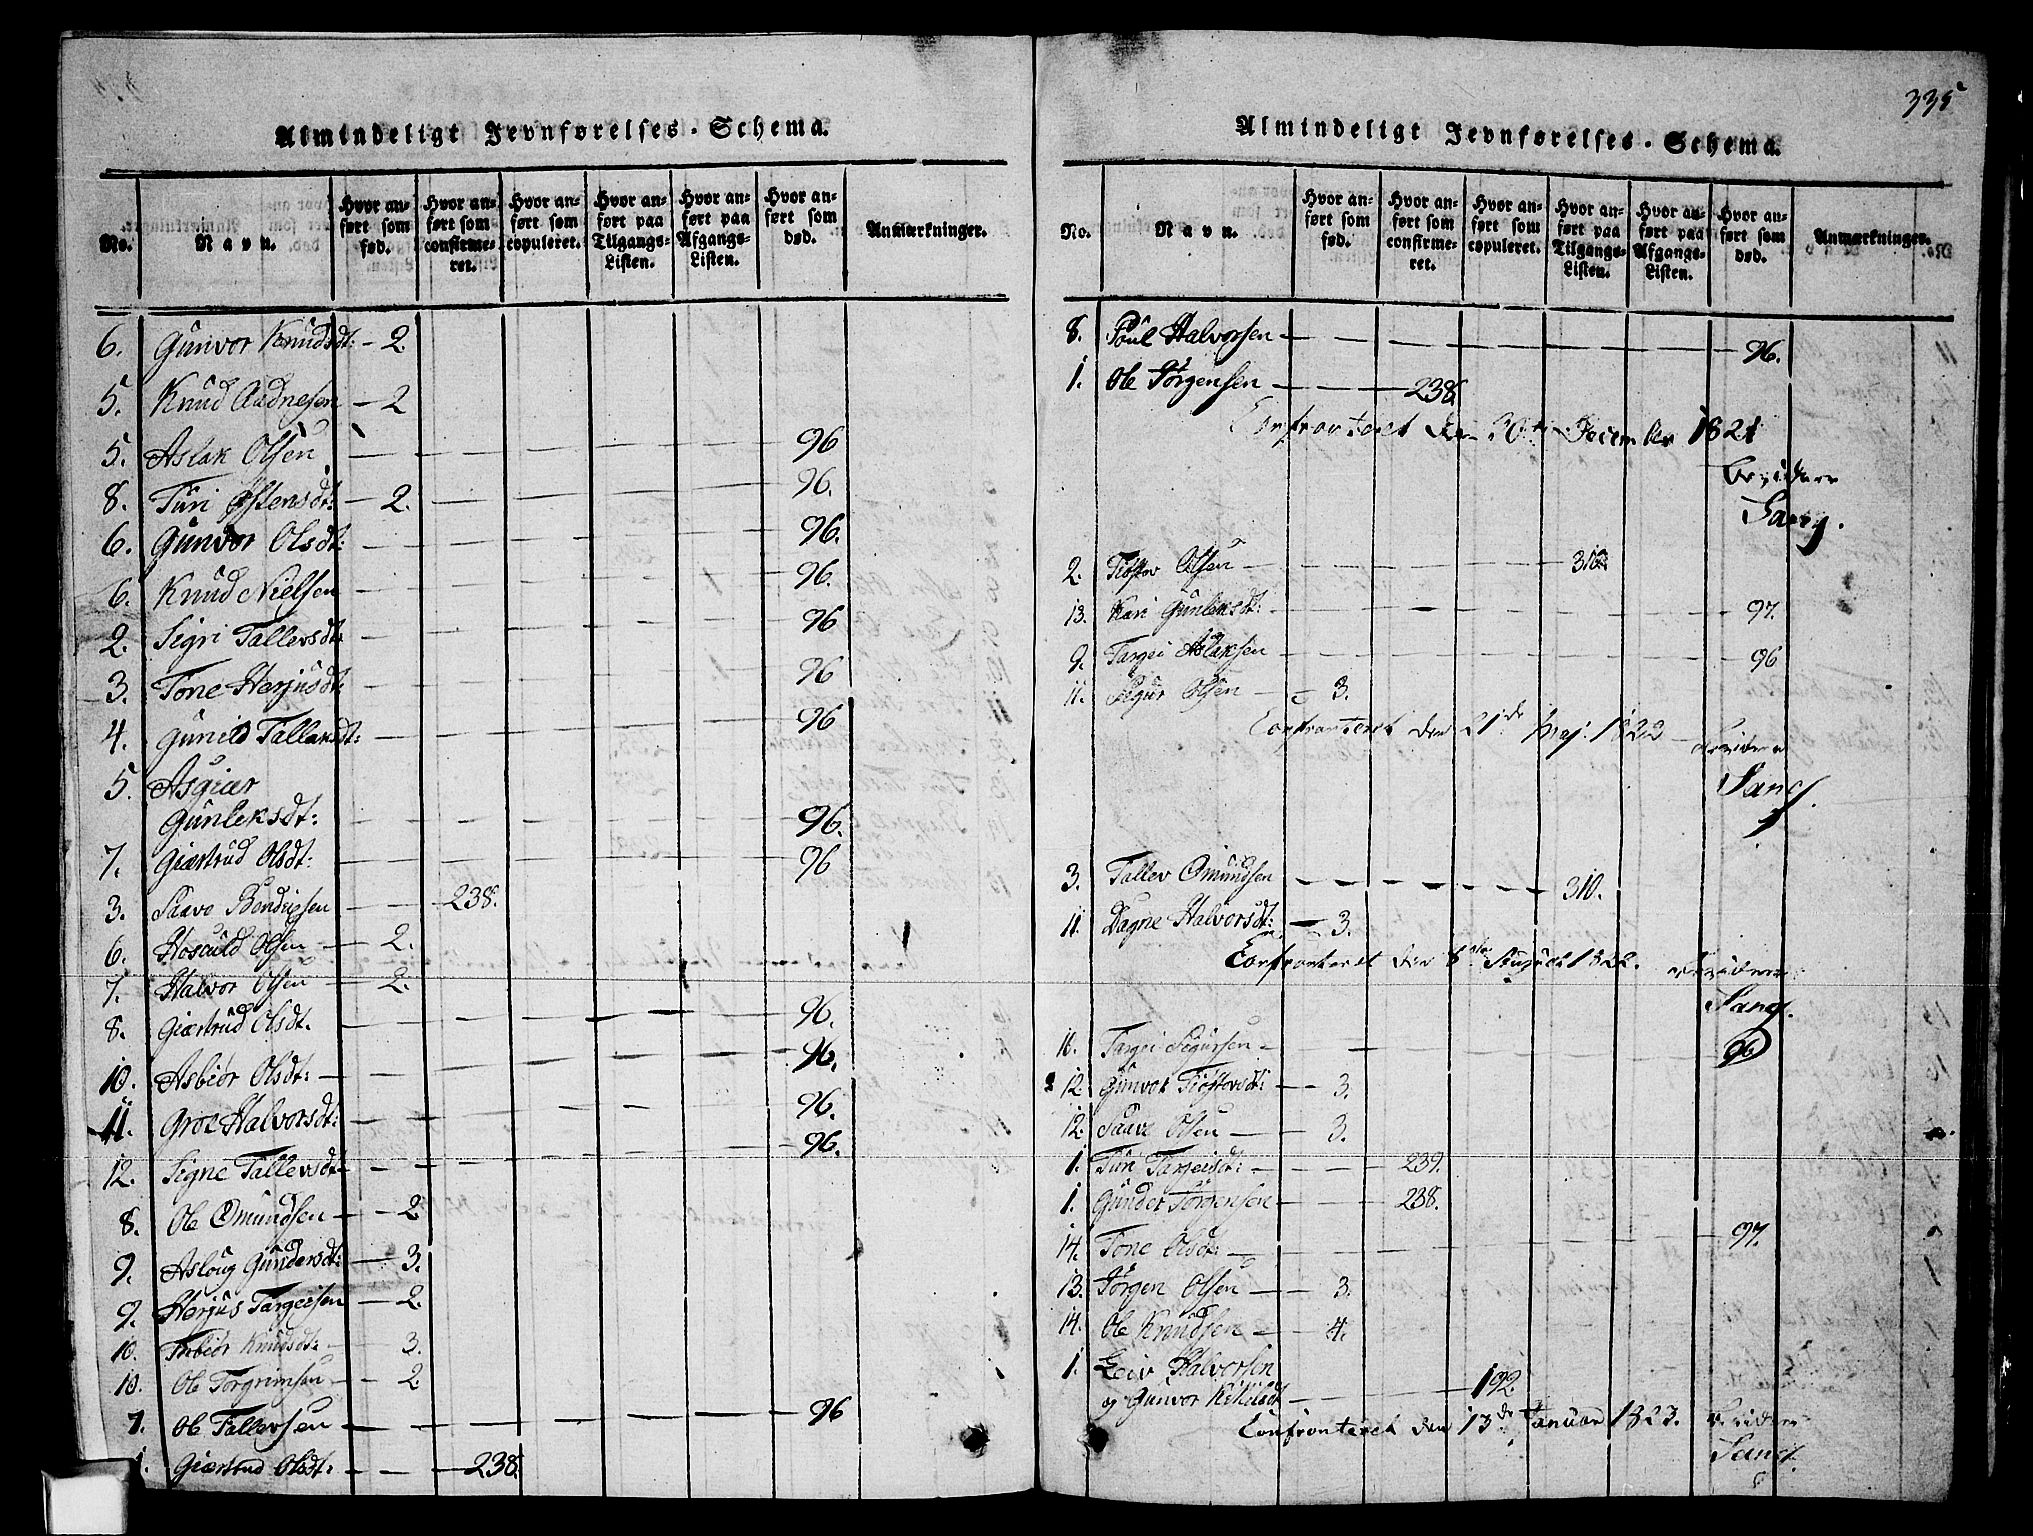 335
Almindeligt Jevnførelses-Schema.
No. Navn. Hvor anført som fød. Hvor anført som confirmeret. Hvor anført som copuleret. Hvor anført paa Tilgangs-Listen. Hvor anført paa Afgangs-Listen. Hvor anført som død. Anmærkninger.
6. Gunvor Knudsdt: 2.
5. Knud Aadnesen 2
5. Aslak Olsen 96
8. Turi Østensdt: 2. 96.
6. Gunvor Olsdt: 96.
6. Knud Nielsen 96.
2. Sigri Tallevsdt: 96
3. Tone Herjusdt: 96
4. Gunild Tallaksdt: 96
5. Asgiær
Gunleksdt: 96.
7. Giærtrud Olsdt: 96
3. Saave Bendixsen 238.
6. Hosuld Olsen 2.
7. Halvor Olsen 2.
8. Giærtrud Olsdt. 96.
10. Asbiør Olsdt: 96.
11. Groe Halvorsdt: 96.
12. Signe Tallevsdt 96.
8. Ole Omundsen 2
9. Asloug Gundersdt: 3.
9. Herjus Targeisen 2.
10. Knudsdt: 3.
10. Ole Torgrimsen 2
7. Ole Tallevsen 96
1. Giærtrud Olsdt: 238.
Almindeligt Jevnførelses-Schema.
No. Navn. Hvor anført som fød. Hvor anført som confirmeret. Hvor anført som copuleret. Hvor anført paa Tilgangs-Listen. Hvor anført paa Afgangs-Listen. Hvor anført som død. Anmærkninger.
8. Poul Halvorsen 96.
1. Ole Jørgensen 238.
Confronteret den 30te December 1821
bevidner
Sang.
2. Tiøstov Olsen 310.
13. Kari Gunleksdt: 97.
9. Targei Aslaksen 96
11. Sigur Olsen 3.
Confronteret den 21de Maj. 1822 bevidner
Sang.
3. Tallev Omundsen 310.
11. Dagne Halvorsdt: 3.
Confronteret den 8de August 1822. bevidner
Sang.
11. Targei Sigursen 96
12. Gunvor Tiøstovsdt: 3.
12. Saave Olsen 3.
1. Turi Targeisdt: 239.
1. Gunder Jørgensen 238.
14. Tone Olsdt: 97.
13. Jørgen Olsen 3.
14. Ole Knudsen 4.
1. Leiv Halvorsen
og Gunvor Kittilsdt 192
Confronteret den 13de Januar 1823. bevidner
Sang.